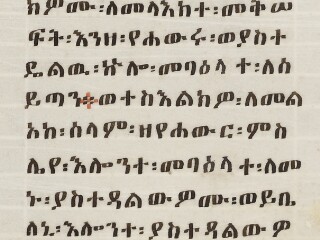 ክዎሙ፡ለመላእክተ፡መቅሠ
ፍት፡እንዘ፡የሐውሩ፡ወያስተ
ዴልዉ፡ኵሎ፡መባዕላ ተ፡ለስ
ይጣን፨ወተስእልክዎ፡ለመል
አከ፡ሰላም፡ዘየሐውር፡ምስ
ሌየ፡እሎንተ፡መባዕላ ተ፡ለመ
ኑ፡ያስተዳልውዎሙ፡ወይቤ
ለኒ፡እሎንተ፡ያስተዳልውዎ